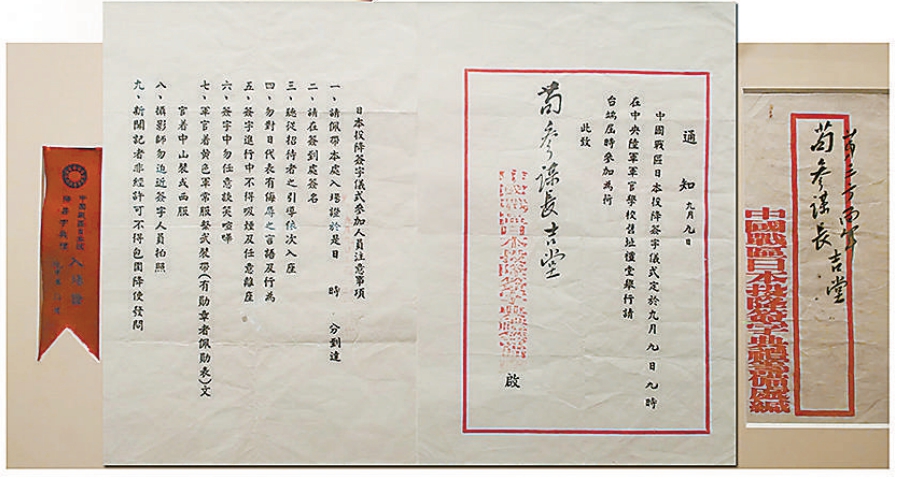 第三方面軍
苟參謀長吉堂
中國戰區日本投降簽字典禮籌備處緘
通知 九月九日
中國戰區日本投降簽字儀式定於九月九日九時
在中央陸軍軍官學校舊址禮堂舉行請
台端屆時參加為荷
此致
苟參謀長吉堂
中國戰區日本投降簽字典禮籌備處 啟
日本投降簽字儀式參加人員注意事項
一、請佩帶本處入場證於是日 時 分到達
二、請在簽到處簽名
三、聽從招待者之引導依次入座
四、勿對日代表有侮辱之言語及行為
五、簽字進行中不得吸煙及任意離座
六、簽字中勿任意談笑喧嘩
七、軍官着黃色軍常服繫武裝帶(有勛章者佩勛表)文
官着中山裝或西服
八、攝影師勿迫近簽字人員拍照
九、新聞記者非經許可不得包圍降使發問
中國戰區日本投
降簽字典禮
入場證